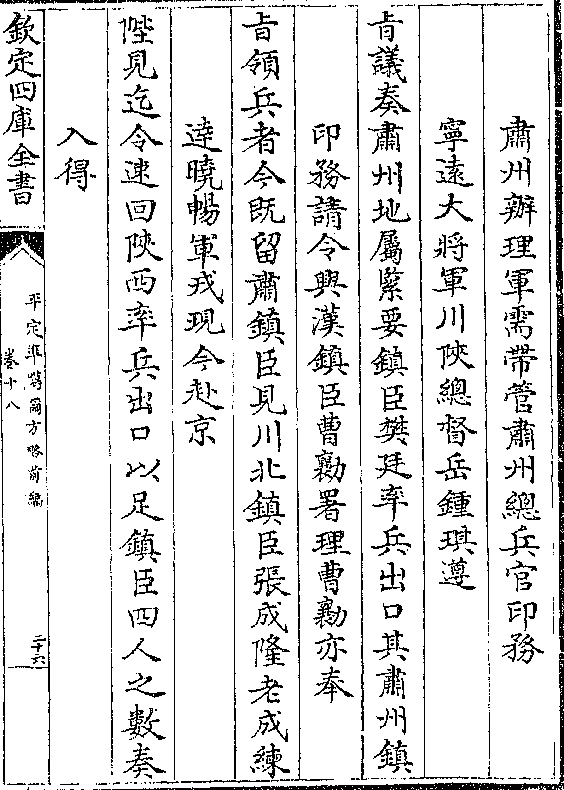 肅州辦理軍需帶管肅州總兵官印務
寧遠大將軍川陝總督岳鍾琪遵
㫖議奏肅州地屬緊要鎮臣樊廷率兵出口其肅州鎮
印務請令興漢鎮臣曹勷署理曹勷亦奉
㫖領兵者今既留肅鎮臣見川北鎮臣張成隆老成練
達曉暢軍戎現今赴京
陛見迄令速回陝西率兵出口以足鎮臣四人之數奏
入得
欽定四庫全書
平定準噶爾方略前編
卷十八
二十六